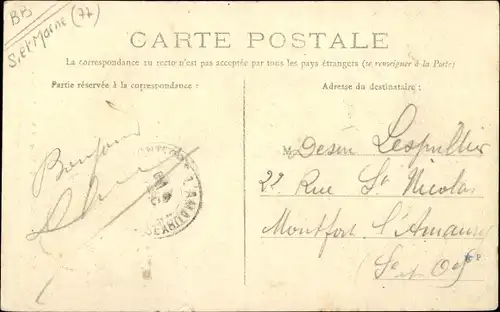 BB
S. et Marne (77)
CARTE POSTALE
La correspondance au recto n'est pas acceptée par tous les pays étrangers (se renseigner à la Poste)
Partie réservée à la correspondance :
Adresse du destinataire :
Bonjour
M Désiré Lespullier
22 Rue St Nicolas
Montfort l'Amaury
(S et O)
MONTFORT-L'AMAURY